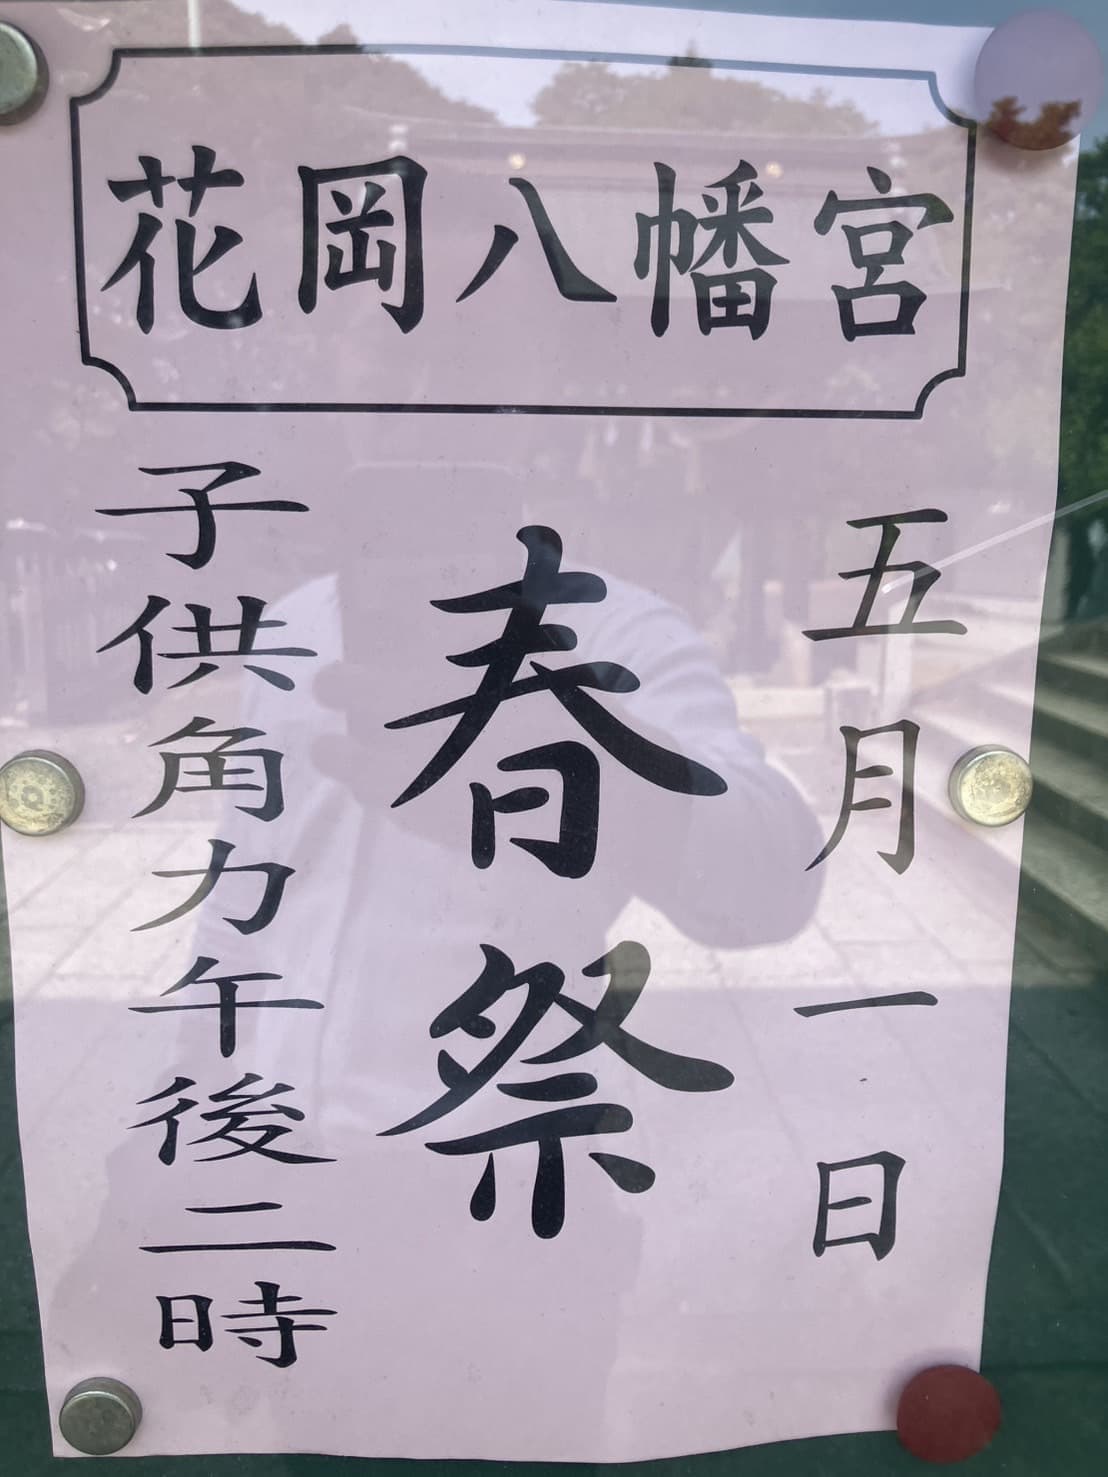 花岡八幡宮
五月一日
春祭
子供角力午後二時